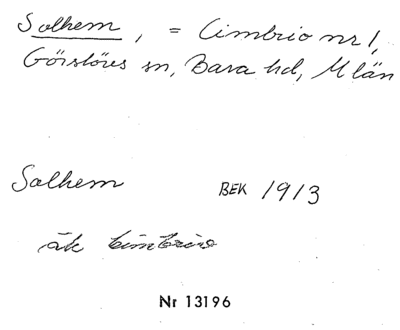 Solhem, = Cimbrio nr 1,
Görslövs sn, Bara hd, M län
Solhem BEK 1913
äk Cimbrio
Nr 13196